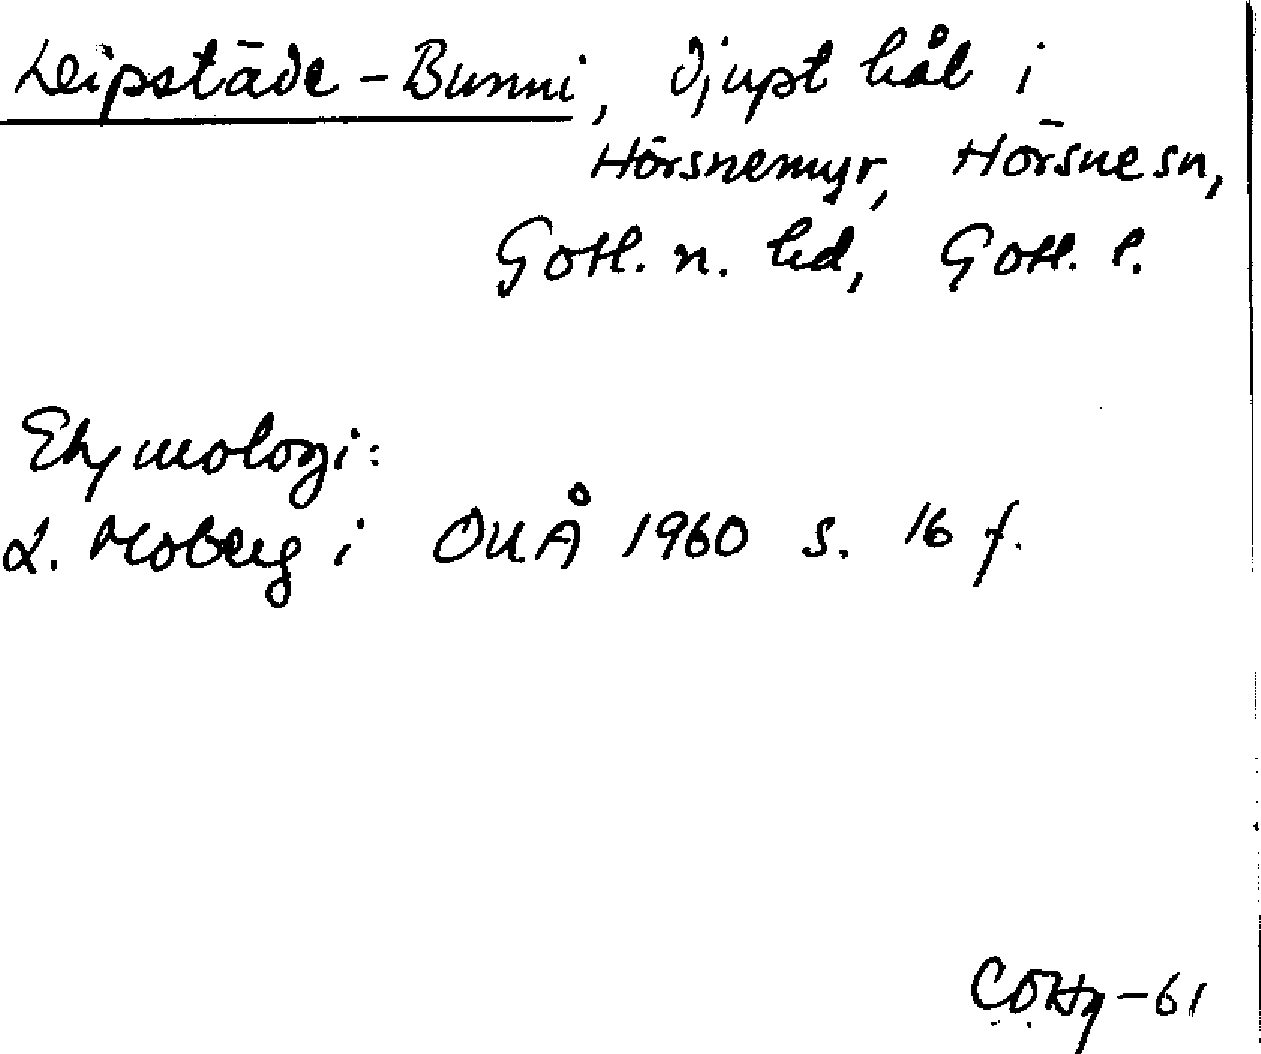 Leipstäde-Bunni, djupt hål i
Hörsnemyr, Hörsne sn,
Gotl. n. hd, Gotl. l.
Etymologi:
L. Moberg i OUÅ 1960 s. 16 f.
-61